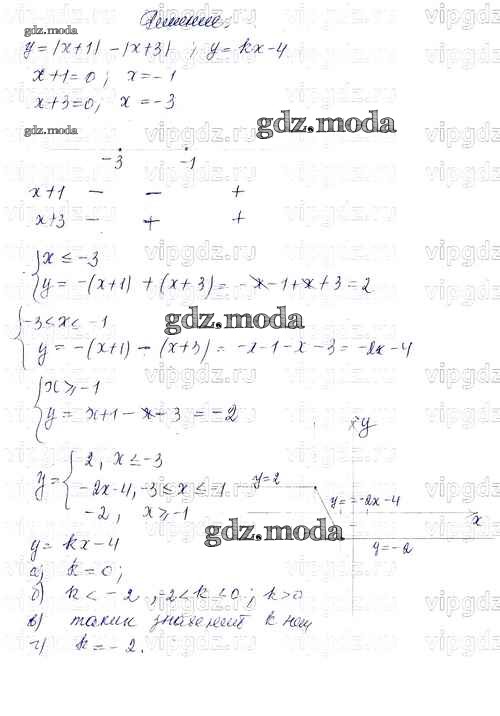 Решение.
gdz.moda
y=|x+1| -|x+3| ; y=kx-4
x+1=0; x=-1
x+3=0, x=-3
gdz.moda
gdz.moda
-3 -1
x+1 - - +
x+3 - + +
{x ≤ -3
y = -(x+1) + (x+3) = -x-1+x+3=2
{-3≤x<-1
gdz.moda
y = -(x+1) - (x+3) = -x-1-x-3=-2x-4
{x≥-1
y = x+1-x-3 = -2
y
y={2, x≤-3
-2x-4, -3≤x≤-1
-2, x≥-1
y=2
y=-2x-4
x
gdz.moda
y=-2
y=kx-4
а) k=0;
б) k<-2, -2<k<0; k>0
в) таких значений k нет
г) k=-2.
vipgdz.ru